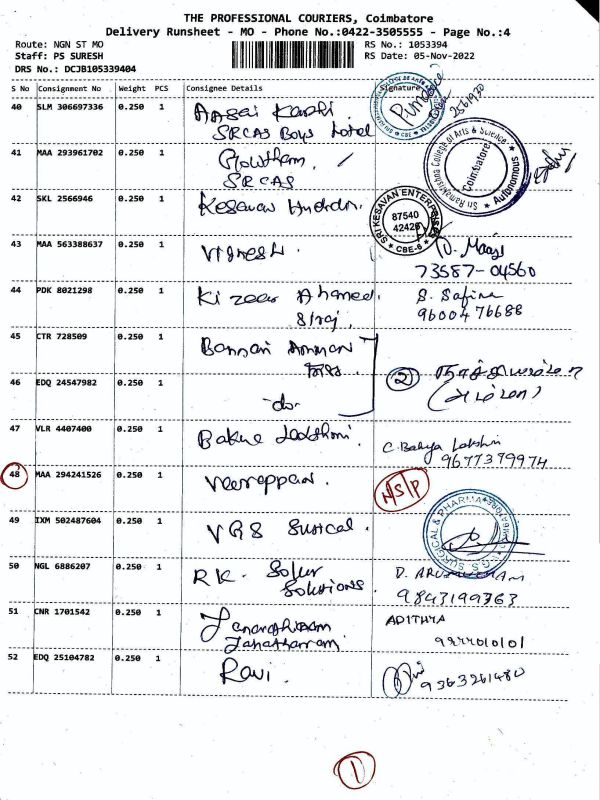 THE PROFESSIONAL COURIERS, Coimbatore
Delivery Runsheet - MO - Phone No.:0422-3505555 - Page No.:4
Route: NGN ST MO
RS No.: 1053394
Staff: PS SURESH
RS Date: 05-Nov-2022
DRS No.: DCJB105339404
S No Consignment No Weight PCS Consignee Details Signature
40 SLM 306697336 0.250 1
SRCAS Boys Hotel
41 MAA 293961702 0.250 1 Gowtham.
SRCAS
Sri Ramakrishna College of Arts & Science
Coimbatore
Autonomous
42 SKL 2566946 0.250 1 Kesavan
SRI KESAVAN ENTERPRISES
87540
42426
CBE-6
43 MAA 563388637 0.250 1 Vignesh.
73587-04560
44 PDK 8021298 0.250 1 Ahamed. S. Safina
Siraj. 9600476688
45 CTR 728509 0.250 1 Bannari Amman
2
46 EDQ 24547982 0.250 1 -do-
47 VLR 4407400 0.250 1 C. Bakya Lakshmi
9677379974
48 MAA 294241526 0.250 1 Veerappan. N/S/P
49 IXM 502487604 0.250 1 VGS Surgical.
V.G.S. SURGICAL & PHARMA
50 NGL 6886207 0.250 1 RK. Solar
Solutions.
9843199763
51 CNR 1701542 0.250 1 ADITHYA
Janartharam.
52 EDQ 25104782 0.250 1 Ravi. 9363261480
1